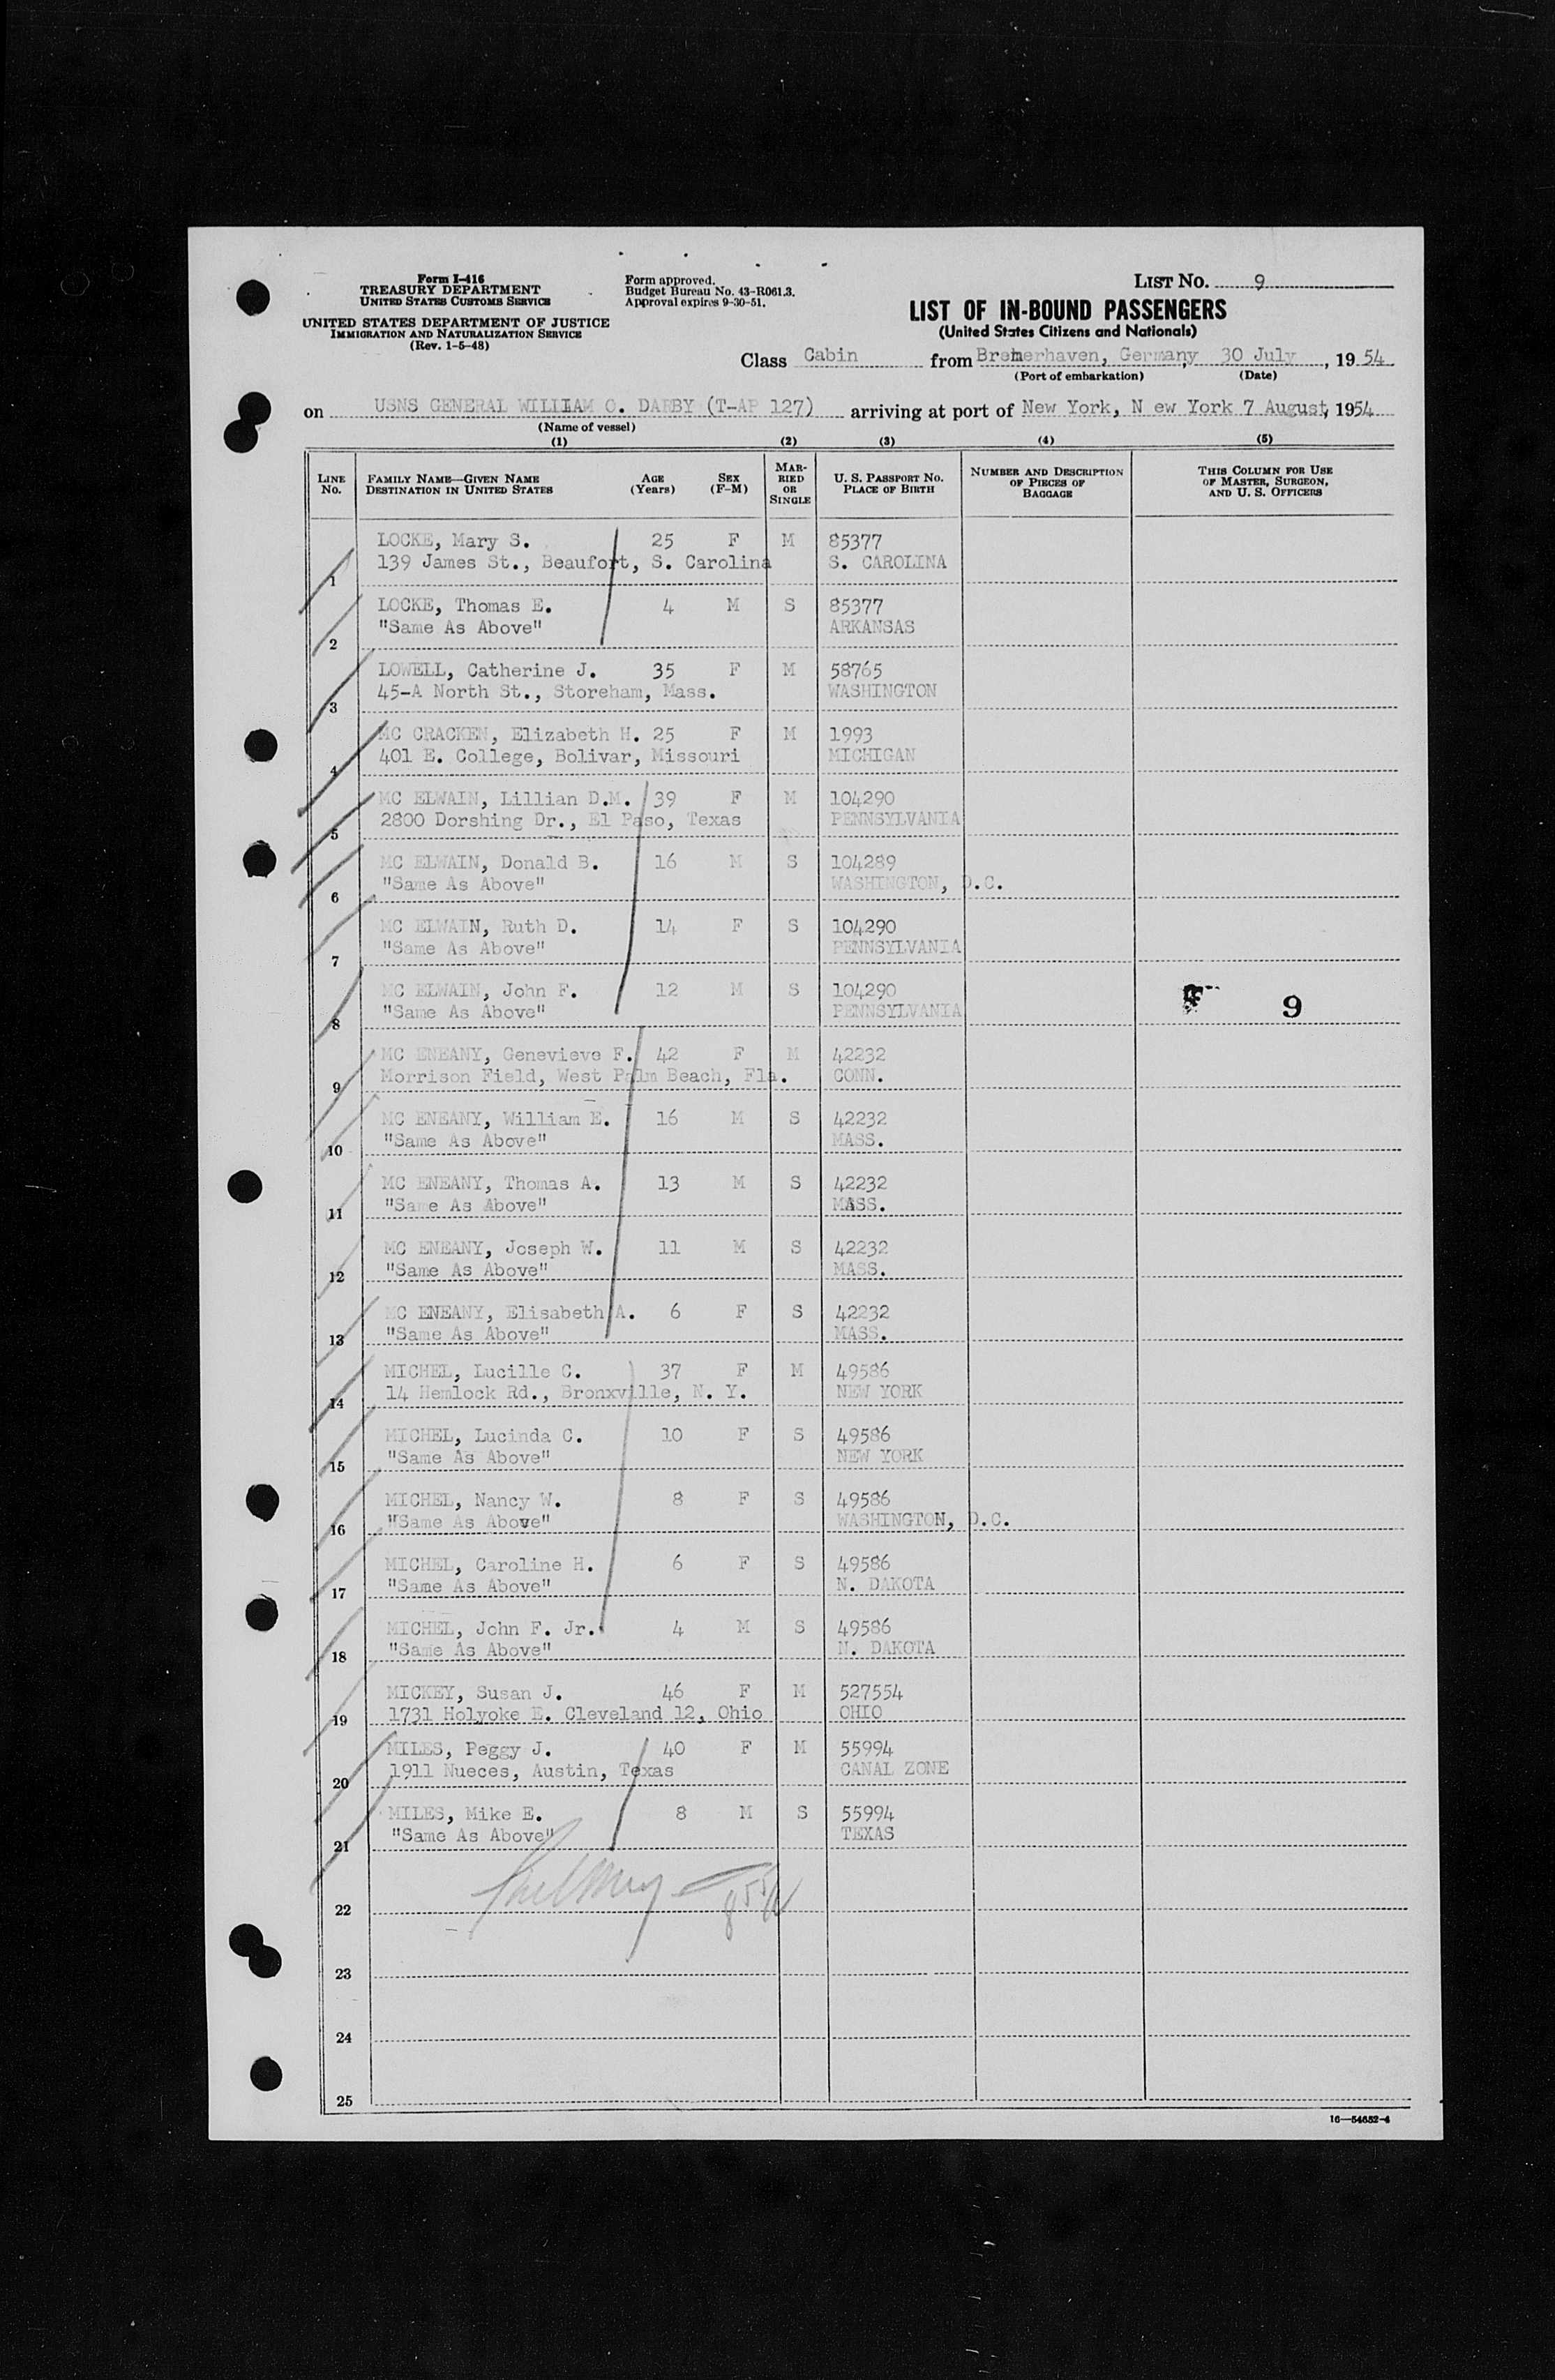 Form I-416
TREASURY DEPARTMENT
UNITED STATES CUSTOMS SERVICE
UNITED STATES DEPARTMENT OF JUSTICE
IMMIGRATION AND NATURALIZATION SERVICE
(Rev. 1-5-48)
Form approved.
Budget Bureau No. 43-R061.3.
Approval expires 9-30-51.
LIST NO. 9
LIST OF IN-BOUND PASSENGERS
(United States Citizens and Nationals)
Class Cabin from Bremerhaven, Germany, 30 July, 1954
(Port of embarkation) (Date)
on USNS GENERAL WILLIAM O. DARBY (T-AP 127) arriving at port of New York, N ew York 7 August, 1954
(Name of vessel)
(1) (2) (3) (4) (5)
LINE No. FAMILY NAME—GIVEN NAME DESTINATION IN UNITED STATES AGE (Years) SEX (F-M) MARRIED OR SINGLE U. S. PASSPORT NO. PLACE OF BIRTH NUMBER AND DESCRIPTION OF PIECES OF BAGGAGE THIS COLUMN FOR USE OF MASTER, SURGEON, AND U. S. OFFICERS
LOCKE, Mary S. 25 F M 85377
1 139 James St., Beaufort, S. Carolina S. CAROLINA
LOCKE, Thomas E. 4 M S 85377
2 "Same As Above" ARKANSAS
LOWELL, Catherine J. 35 F M 58765
3 45-A North St., Storeham, Mass. WASHINGTON
MC CRACKEN, Elizabeth H. 25 F M 1993
4 401 E. College, Bolivar, Missouri MICHIGAN
MC ELWAIN, Lillian D.M. 39 F M 104290
5 2800 Dorshing Dr., El Paso, Texas PENNSYLVANIA
MC ELWAIN, Donald B. 16 M S 104289
6 "Same As Above" WASHINGTON, D.C.
MC ELWAIN, Ruth D. 14 F S 104290
7 "Same As Above" PENNSYLVANIA
MC ELWAIN, John F. 12 M S 104290
8 "Same As Above" PENNSYLVANIA 9
MC ENEANY, Genevieve F. 42 F M 42232
9 Morrison Field, West Palm Beach, Fla. CONN.
MC ENEANY, William E. 16 M S 42232
10 "Same As Above" MASS.
MC ENEANY, Thomas A. 13 M S 42232
11 "Same As Above" MASS.
MC ENEANY, Joseph W. 11 M S 42232
12 "Same As Above" MASS.
MC ENEANY, Elisabeth A. 6 F S 42232
13 "Same As Above" MASS.
MICHEL, Lucille C. 37 F M 49586
14 14 Hemlock Rd., Bronxville, N. Y. NEW YORK
MICHEL, Lucinda C. 10 F S 49586
15 "Same As Above" NEW YORK
MICHEL, Nancy W. 8 F S 49586
16 "Same As Above" WASHINGTON, D.C.
MICHEL, Caroline H. 6 F S 49586
17 "Same As Above" N. DAKOTA
MICHEL, John F. Jr. 4 M S 49586
18 "Same As Above" N. DAKOTA
MICKEY, Susan J. 46 F M 527554
19 1731 Holyoke E. Cleveland 12, Ohio OHIO
MILES, Peggy J. 40 F M 55994
20 1911 Nueces, Austin, Texas CANAL ZONE
MILES, Mike E. 8 M S 55994
21 "Same As Above" TEXAS
22
23
24
25
16—54652-4